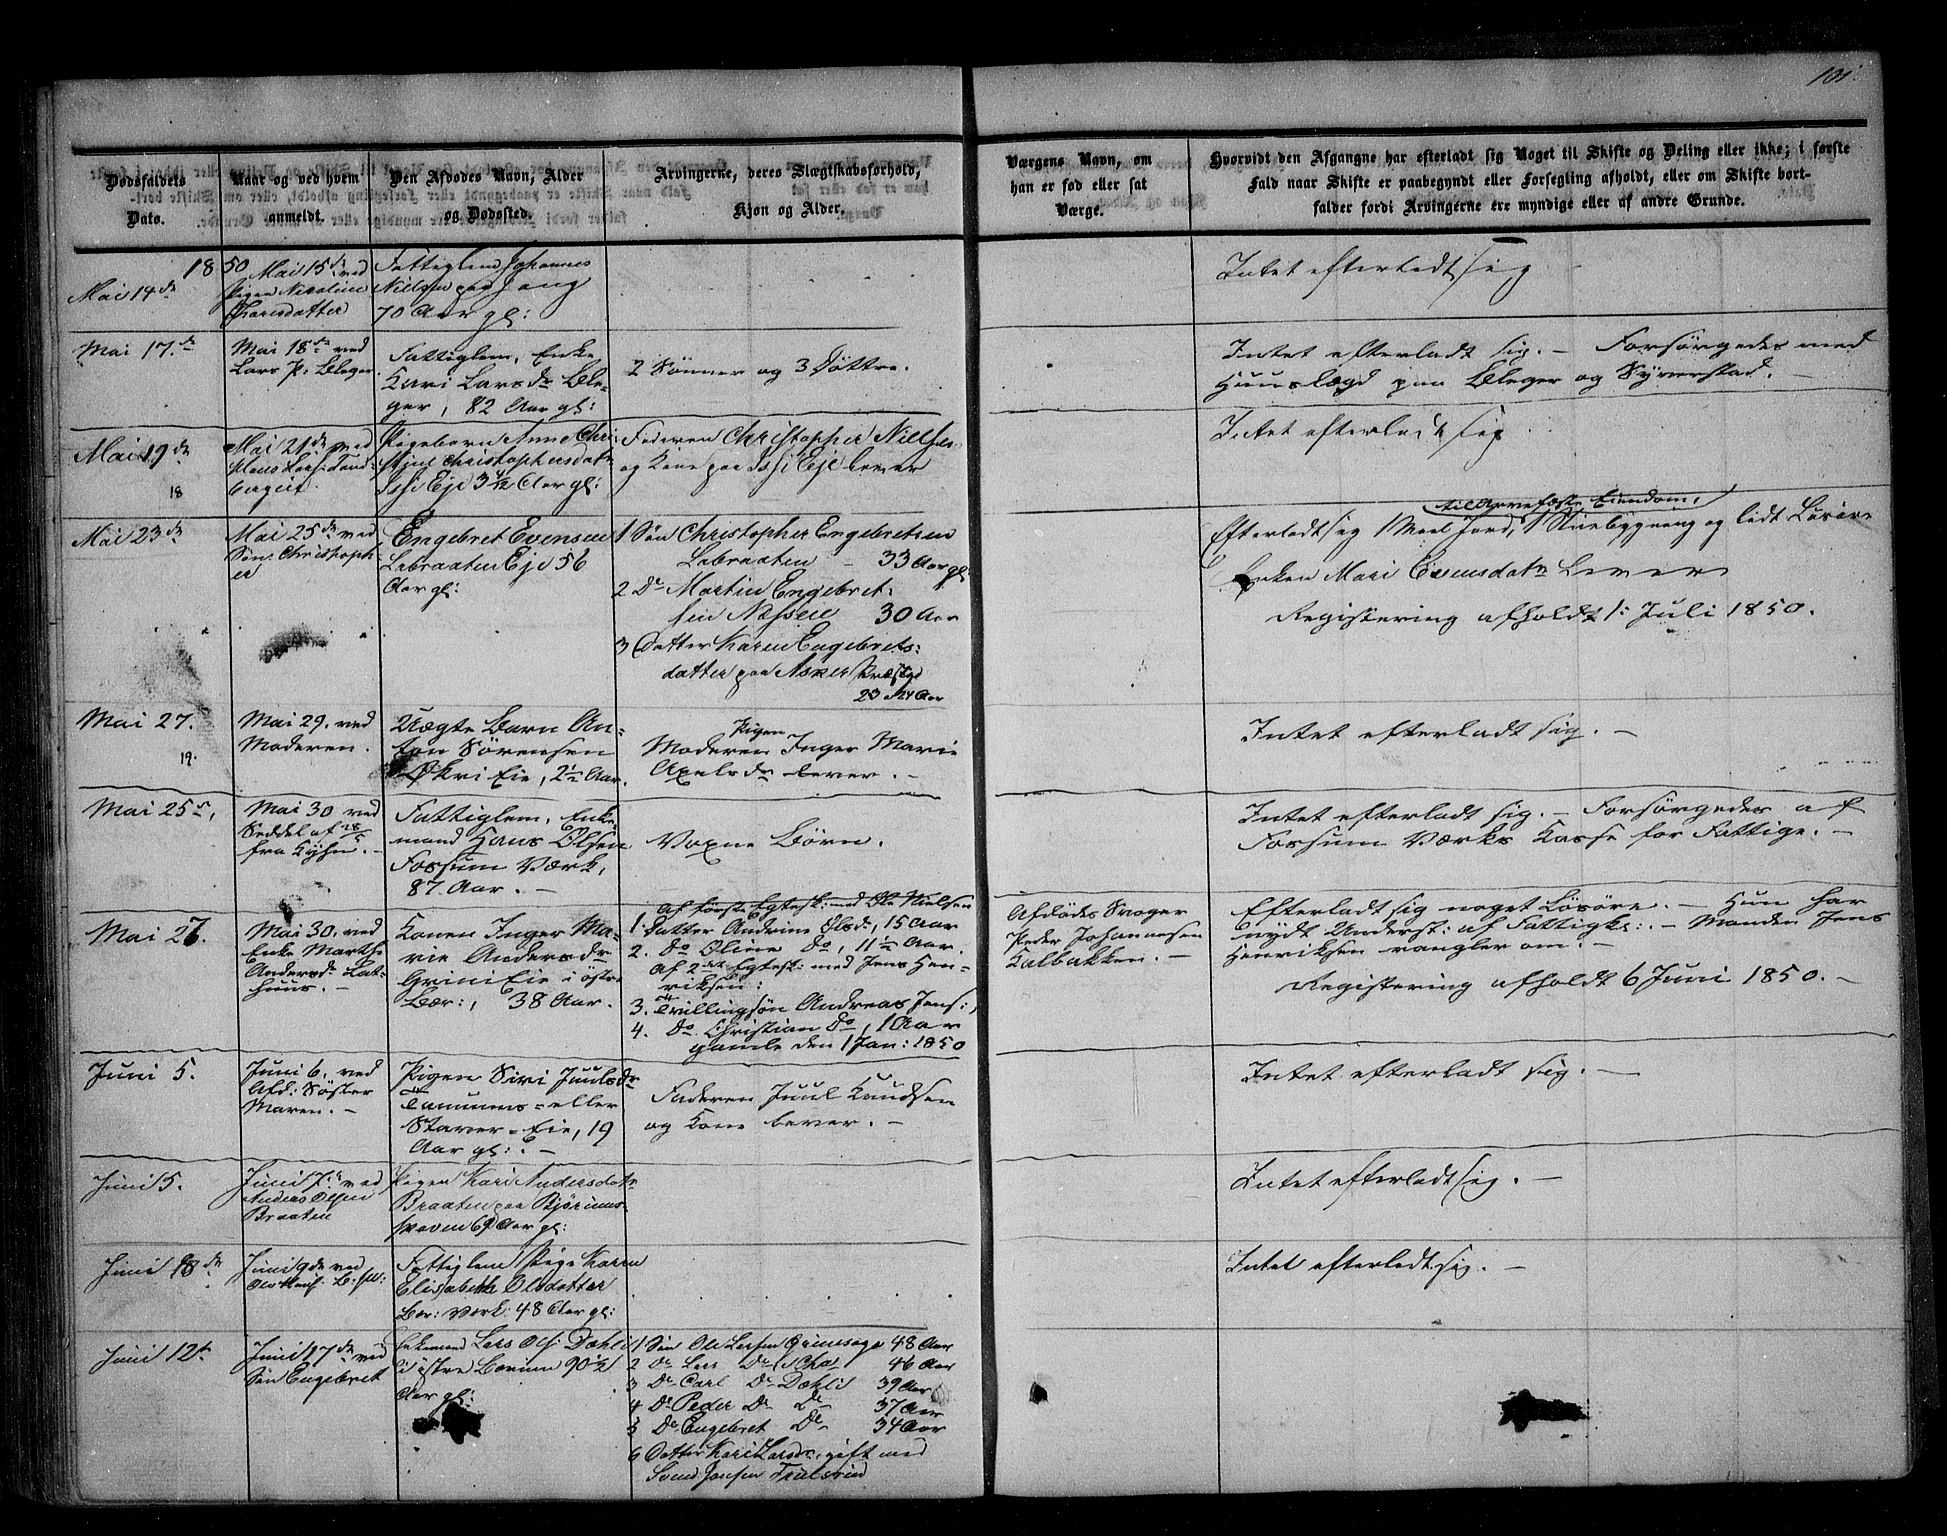 101.
Dødsfaldets
Dato.
Naar og ved hvem
anmeldt.
Den Afdødes Navn, Alder
og Dødssted.
Arvingerne, deres Slægtskabsforhold,
Kjøn og Alder.
Værgens Navn, om
han er fød eller sat
Værge.
Hvorvidt den Afgangne har efterladt sig Noget til Skifte og Deling eller ikke; i første
Fald naar Skifte er paabegyndt eller Forsegling afholdt, eller om Skifte bort-
falder fordi Arvingerne ere myndige eller af andre Grunde.
1850
Mai 14de
Mai 15de ved
Pigen Nicoline
Larsdatter
Fattiglem Johannes
Nielsen paa Haug
70 Aar gl:
Intet efterladt sig
Mai 17.de
Mai 18de ved
Lars P: Bleger.
Fattiglem, Enke
Kari Larsdr Ble-
ger, 82 Aar gl:
2 Sønner og 3 Døttre.
Intet efterladt sig. – Forsørgedes med
Huuslægd paa Bleger og Syverstad.
Mai 19de
18
Mai 21de ved
Klaus Lars: Tand-
berg
Pigebarn Anne Chri-
stine Christophersdatr
Issi Eje 3 4/12 Aar gl:
Faderen Christopher Nielsen
og Kone paa Issi Eje lever
Intet efterladt sig
Mai 23de
Mai 25de ved
Søn: Christoph-
er
Engebret Evensen
Labraaten Eje 56
Aar gl:
1 Søn Christopher Engebretsen
Labraaten – 33 Aar gl
2 Do Martin Engebret-
sen Næssen 30 Aar
3 Datter Karen Engebrets-
datter paa Asker Præstgd
23 à 24 Aar
til Arvefæste Eiendom,
Efterladt sig 1 Maal Jord, 1 Stuebygning og lidt Løsøre
Enken Mari Evensdatr Lever
Registering afholdt 1: Juli 1850.
Mai 27.
19.
Mai 29. ved
Moderen.
Uægte Barn An-
ton Sørensen
Økri Eie, 2½ Aar.
Pigen
Moderen Inger Marie
Axelsdr lever. –
Intet efterladt sig. –
Mai 25de,
Mai 30 ved
Seddel af 28/5
fra Kyhn. –
Fattiglem, Enke-
mand Hans Olsen
Fossum Værk,
87 Aar. –
Voxne Børn.
Intet efterladt sig. – Forsørgedes af
Fossum Værks Kasse for Fattige. –
Mai 27.
Mai 30. ved
Enke Marthe
Andersdr Lat-
huus. –
Konen Inger Ma-
rie Andersdr
Grini Eie i østre
Bær:, 38 Aar.
af første Egtesk: med Ole Nielsen
1. Datter Andrine Olsd:, 15 Aar
2. Do Oline Do, 11½ Aar
af 2det Egtesk: med Jens Hen-
riksen:
3. Tvillingsøn Andreas Jens:,
4. Do Christian Do, 1 Aar
gamle den 1 Jan: 1850
Afdødes Svoger
Peder Johannesen
Kalbakken. –
Efterladt sig noget Løsøre. – Hun har
nydt Underst: af Fattigk:. – Manden Jens
Henriksen rangler om. –
Registering afholdt 6 Juni 1850. –
Juni 5.
Juni 6. ved
Afd: Søster
Maren. –
Pigen Siri Juulsdr
Tanums- eller
Staver-Eie, 19
Aar gl:. –
Faderen Juul Knudsen
og Kone lever. –
Intet efterladt sig. –
Juni 5.
Juni 7de ved
Anders Olsen
Braaten
Pigen Kari Andersdatr
Braaten paa Bjørums-
skoven 69 Aar gl:
Intet efterladt sig. –
Juni 18de
Juni 9de ved
Fattiglem Pige Karen
Elisabeth Olsdatter
Bær: Verk 48 Aar gl:
Intet efterladt sig. –
Juni 12te
Juni 17de ved
Søn Engebret
Enkemand Lars Ols: Dæhli
i østre Bærum 90½
Aar gl:
1 Søn Ole Larsen Grinisaga 48 Aar
2 Do Lars Do 46 Aar
3 Do Carl Do Dæhli 39 Aar
4 Do Peder Do Do 37 Aar
5 Do Engebret Do 34 Aar
6 Datter Kari Larsdr, gift med
Svend Jensen Trulsrud